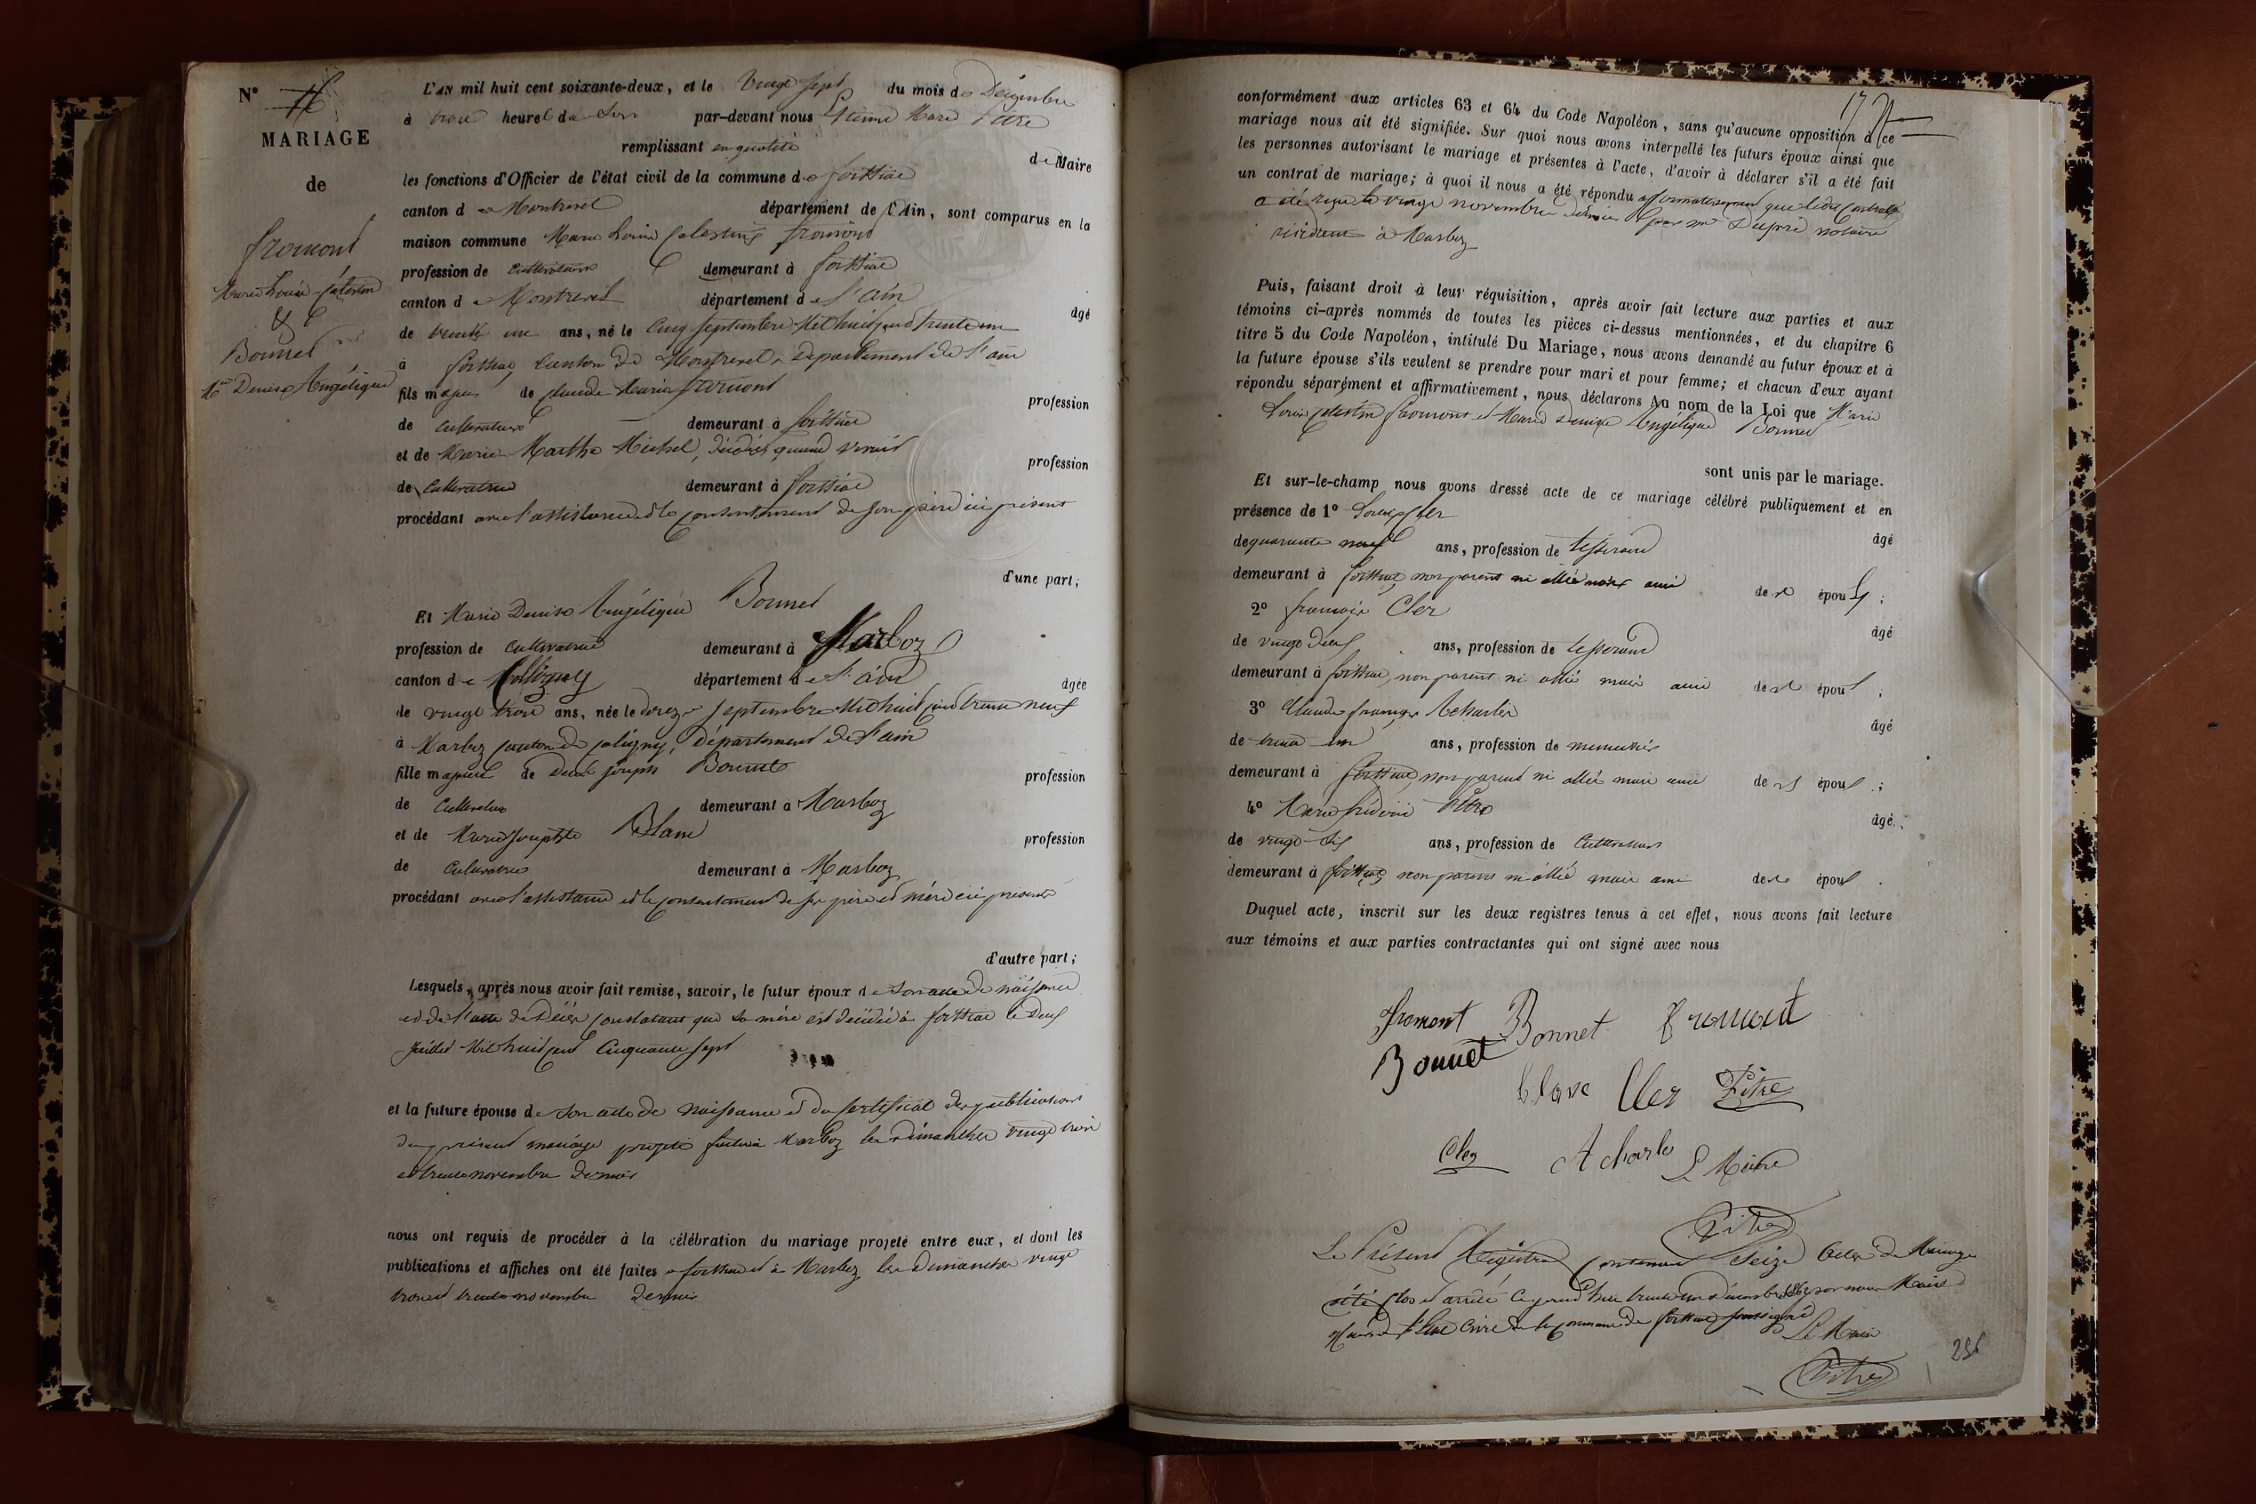 N°
MARIAGE
de
fromont
Marie Louis Célestin
&
Bonnet
Mie Denise Angélique
L'AN mil huit cent soixante-deux, et le vingt sept du mois de Décembre
à trois heures du Soir par-devant nous Etienne Marie Pitre
remplissant en qualité de Maire
les fonctions d'Officier de l'état civil de la commune de foissiat
canton de Montrevel département de l'Ain, sont comparus en la
maison commune Marie Louis Célestin fromont
profession de Cultivateur demeurant à foissiat
canton de Montrevel département de l'ain âgé
de trente un ans, né le Cinq Septembre Mil huit cent trente un
à foissiat Canton de Montrevel, département de l'ain
fils majeur de Claude Marie fromont profession
de Cultivateur demeurant à foissiat
et de Marie Marthe Michel, décédée quand vivait profession
de Cultivatrice demeurant à foissiat
procédant avec l'assistance et le consentement de son père ici présent
d'une part;
Et Marie Denise Angélique Bonnet
profession de Cultivatrice demeurant à Marboz
canton de Colligny département de l'ain âgée
de vingt trois ans, née le Septembre Mil huit cent trente neuf
à Marboz canton de Coligny, département de l'ain
fille majeure de Joseph Bonnet profession
de Cultivateur demeurant à Marboz
et de Marie Josephte Blanc profession
de Cultivatrice demeurant à Marboz
procédant avec l'assistance et le consentement de ses père et mère ici présents
d'autre part;
Lesquels, après nous avoir fait remise, savoir, le futur époux de son acte de naissance
et de l'acte de décès constatant que sa mère est décédée à foissiat le deux
Juillet Mil huit cent Cinquante sept
et la future épouse de son acte de Naissance et du certificat des publications
du présent mariage projeté faites à Marboz les dimanches vingt trois
et trente novembre dernier
nous ont requis de procéder à la célébration du mariage projeté entre eux, et dont les
publications et affiches ont été faites à foissiat et à Marboz les dimanches vingt
trois et trente novembre dernier
17
conformément aux articles 63 et 64 du Code Napoléon, sans qu'aucune opposition à ce
mariage nous ait été signifiée. Sur quoi nous avons interpellé les futurs époux ainsi que
les personnes autorisant le mariage et présentes à l'acte, d'avoir à déclarer s'il a été fait
un contrat de mariage; à quoi il nous a été répondu affirmativement que ledit contrat
a été reçu le vingt novembre dernier par Me Dupré notaire
résident à Marboz
Puis, faisant droit à leur réquisition, après avoir fait lecture aux parties et aux
témoins ci-après nommés de toutes les pièces ci-dessus mentionnées, et du chapitre 6
titre 5 du Code Napoléon, intitulé Du Mariage, nous avons demandé au futur époux et à
la future épouse s'ils veulent se prendre pour mari et pour femme; et chacun d'eux ayant
répondu séparément et affirmativement, nous déclarons Au nom de la Loi que Marie
Louis Célestin fromont et Marie Denise Angélique Bonnet
sont unis par le mariage.
Et sur-le-champ nous avons dressé acte de ce mariage célébré publiquement et en
présence de 1° Louis Cler âgé
de quarante neuf ans, profession de tisserand
demeurant à foissiat, non parent ni allié mais ami des époux;
2° françois Cler âgé
de vingt deux ans, profession de tisserand
demeurant à foissiat, non parent ni allié mais ami des époux;
3° Claude françois Acharles âgé
de trente un ans, profession de menuisier
demeurant à foissiat, non parent ni allié mais ami des époux;
4° Marie frédéric Pitre âgé
de vingt-six ans, profession de Cultivateur
demeurant à foissiat non parent ni allié mais ami des époux.
Duquel acte, inscrit sur les deux registres tenus à cet effet, nous avons fait lecture
aux témoins et aux parties contractantes qui ont signé avec nous
fromont Bonnet fromont
Bonnet
blanc Cler Pitre
Cler Acharle Le Maire
Pitre
Le Présent Registre contenant Seize Actes de Mariage
a été clos et arrêté ce jourd'hui trente un décembre 1862 par nous Maire
de la commune de foissiat soussigné
Le Maire
Pitre